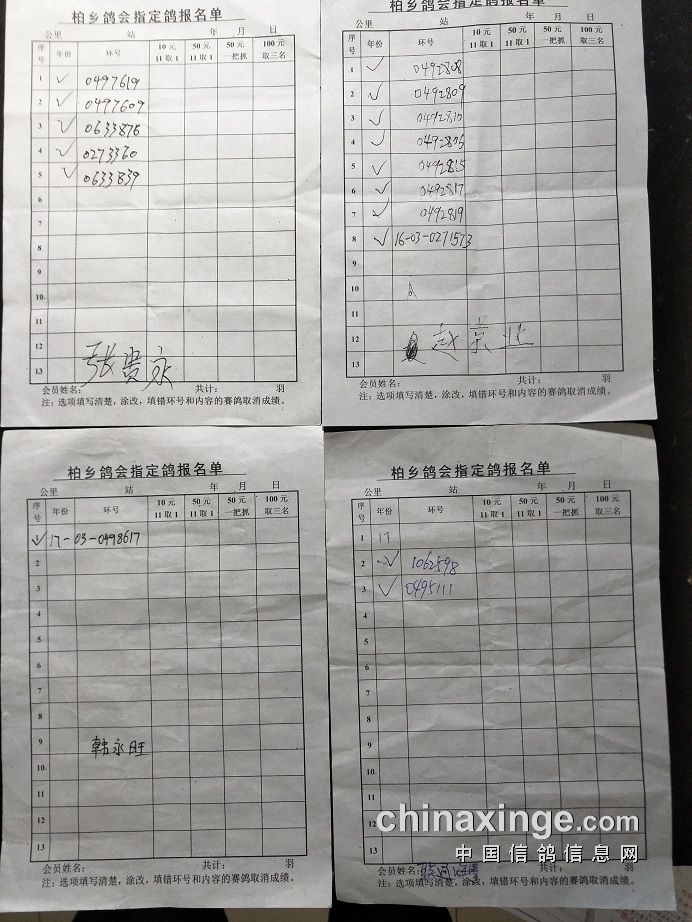 柏乡鸽会指定鸽报名单
公里 站 年 月 日
序号 年份 环号 10元11取1 50元11取1 50元一把抓 100元取三名
1 ✓ 0497619
2 ✓ 0497609
3 ✓ 0633876
4 ✓ 0273360
5 ✓ 0633839
6
7
8
9
10
11
12
13
张贵永
会员姓名: 共计: 羽
注:选项填写清楚,涂改,填错环号和内容的赛鸽取消成绩。
柏乡鸽会指定鸽报名单
公里 站 年 月 日
序号 年份 环号 10元11取1 50元11取1 50元一把抓 100元取三名
1 ✓ 0492808
2 ✓ 0492809
3 ✓ 0492810
4 ✓ 0492805
5 ✓ 0492815
6 ✓ 0492817
7 ✓ 0492819
8 ✓ 16-03-0271573
9
10
11
12
13
赵京业
会员姓名: 共计: 羽
注:选项填写清楚,涂改,填错环号和内容的赛鸽取消成绩。
柏乡鸽会指定鸽报名单
公里 站 年 月 日
序号 年份 环号 10元11取1 50元11取1 50元一把抓 100元取三名
✓ 17-03-0498617
2
3
4
5
6
7
8
9
韩永旺
10
11
12
13
会员姓名: 共计: 羽
注:选项填写清楚,涂改,填错环号和内容的赛鸽取消成绩。
柏乡鸽会指定鸽报名单
公里 站 年 月 日
序号 年份 环号 10元11取1 50元11取1 50元一把抓 100元取三名
1 17
2 ✓ 1062598
3 ✓ 0495111
4
5
6
7
8
9
10
11
12
13
会员姓名: 共计: 羽
注:选项填写清楚,涂改,填错环号和内容的赛鸽取消成绩。
chinaxinge.com
中国信鸽信息网